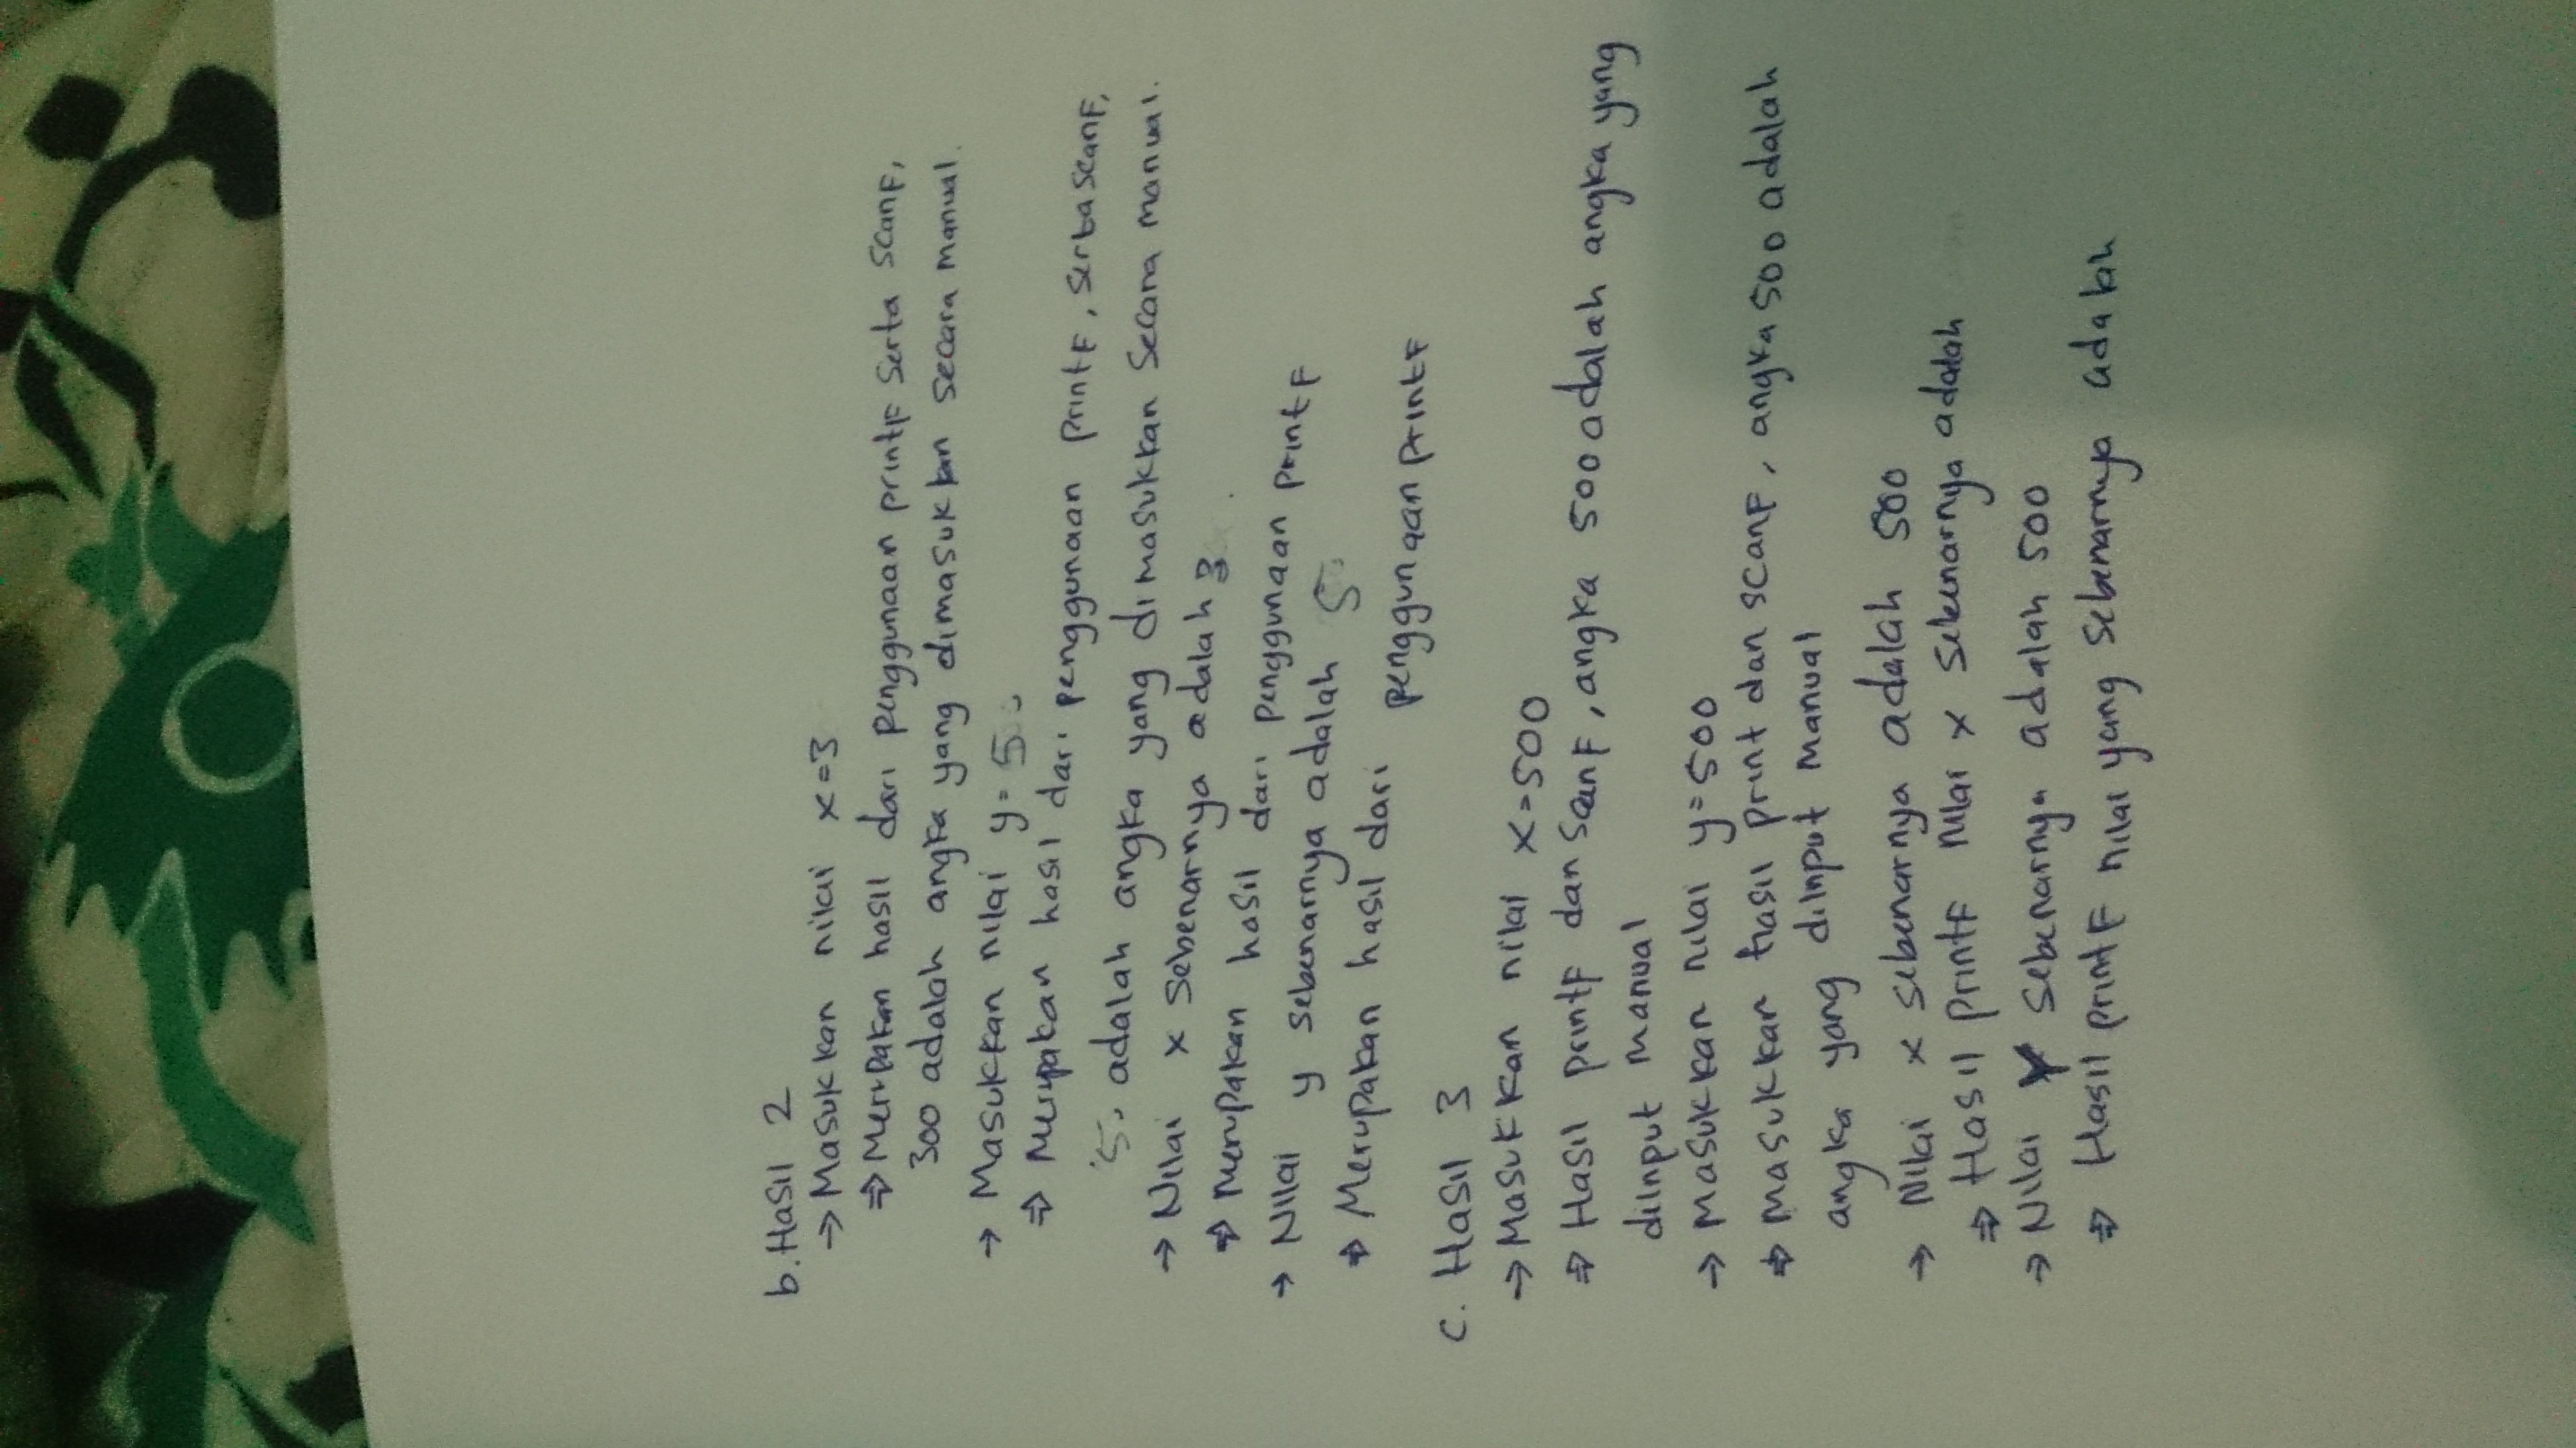 b. Hasil 2
→ Masukkan nilai x=3
⇒ Merupakan hasil dari penggunaan printf serta scanf,
300 adalah angka yang dimasukkan secara manual.
→ Masukkan nilai y= 5
⇒ Merupakan hasil dari penggunaan printf, serta scanf,
5 adalah angka yang dimasukkan secara manual.
→ Nilai x sebenarnya adalah 3
⇒ Merupakan hasil dari penggunaan printf
→ Nilai y sebenarnya adalah 5
⇒ Merupakan hasil dari penggunaan printf
c. Hasil 3
→ Masukkan nilai x=500
⇒ Hasil printf dan scanf, angka 500 adalah angka yang
diinput manual
→ Masukkan nilai y=500
⇒ Masukkan hasil print dan scanf, angka 500 adalah
angka yang diinput manual
→ Nilai x sebenarnya adalah 500
⇒ Hasil printf nilai x sebenarnya adalah
→ Nilai Y sebenarnya adalah 500
⇒ Hasil printf nilai yang sebenarnya adalah